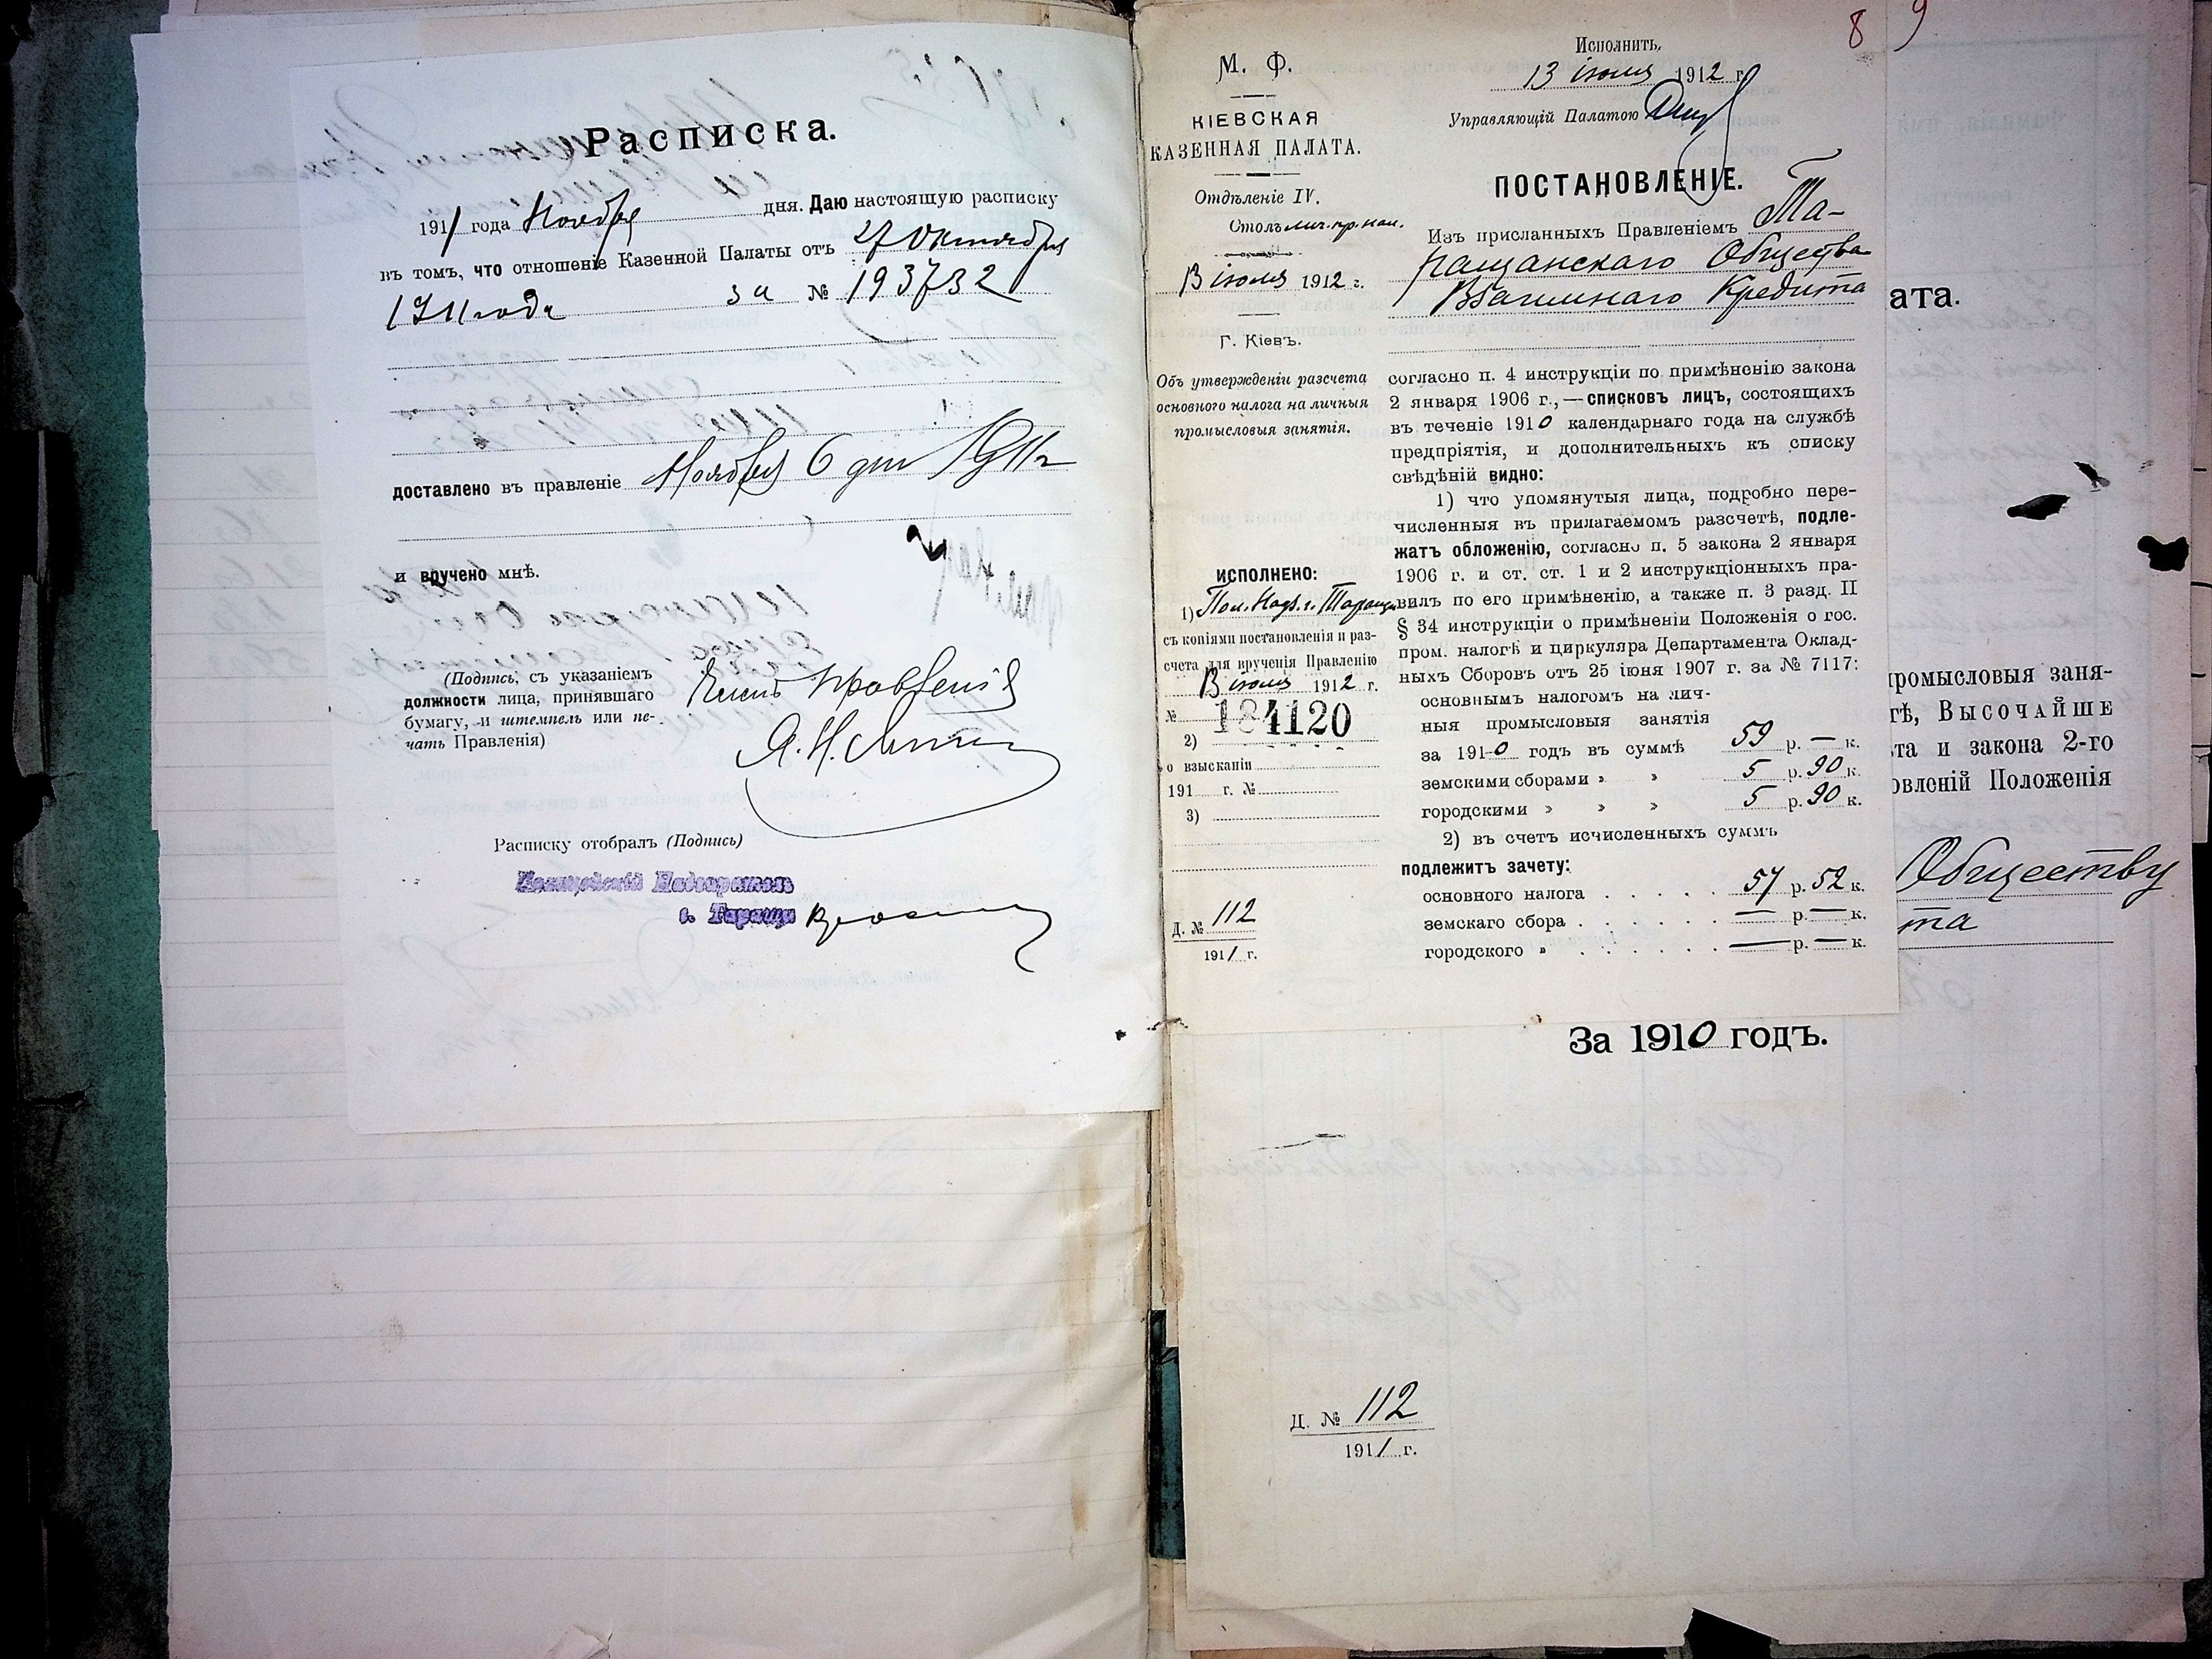 Расписка.
1911 года Ноября дня. Даю настоящую расписку
въ томъ, что отношеніе Казенной Палаты отъ 27 Октября
1911 года за № 193732
доставлено въ правленіе Ноября 6 дня 1911 г
и вручено мнѣ.
(Подпись, съ указаніемъ
должности лица, принявшаго
бумагу, и штемпель или пе-
чать Правленія)
Членъ Правленія
Расписку отобралъ (Подпись)
Полицейскій Надзиратель
г. Таращи
8 9
М. Ф.
КІЕВСКАЯ
КАЗЕННАЯ ПАЛАТА.
Отдѣленіе IV.
Столъ лич. пр. нал.
13 іюля 1912 г.
Г. Кіевъ.
Объ утвержденіи разсчета
основного налога на личныя
промысловыя занятія.
ИСПОЛНЕНО:
1) Пол. Надз. г. Таращи
съ копіями постановленія и раз-
счета для врученія Правленію
13 іюля 1912 г.
№ 184120
2)
о взысканіи
191 г. №
3)
Д. № 112
1911 г.
Исполнить.
13 іюля 1912 г.
Управляющій Палатою
ПОСТАНОВЛЕНІЕ.
Изъ присланныхъ Правленіемъ Та-
ращанскаго Общества
Взаимнаго Кредита
согласно п. 4 инструкціи по примѣненію закона
2 января 1906 г.,—списковъ лицъ, состоящихъ
въ теченіе 1910 календарнаго года на службѣ
предпріятія, и дополнительныхъ къ списку
свѣдѣній видно:
1) что упомянутыя лица, подробно пере-
численныя въ прилагаемомъ разсчетѣ, подле-
жатъ обложенію, согласно п. 5 закона 2 января
1906 г. и ст. ст. 1 и 2 инструкціонныхъ пра-
вилъ по его примѣненію, а также п. 3 разд. II
§ 34 инструкціи о примѣненіи Положенія о гос.
пром. налогѣ и циркуляра Департамента Оклад-
ныхъ Сборовъ отъ 25 іюня 1907 г. за № 7117:
основнымъ налогомъ на лич-
ныя промысловыя занятія
за 1910 годъ въ суммѣ 59 р. — к.
земскими сборами » » 5 р. 90 к.
городскими » » » 5 р. 90 к.
2) въ счетъ исчисленныхъ суммъ
подлежитъ зачету:
основного налога . . . . 57 р. 52 к.
земскаго сбора . . . . . — р. — к.
городского » . . . . . — р. — к.
ата.
промысловыя заня-
гѣ, ВЫСОЧАЙШЕ
та и закона 2-го
овленій Положенія
Обществу
та
За 1910 годъ.
Д. № 112
1911 г.